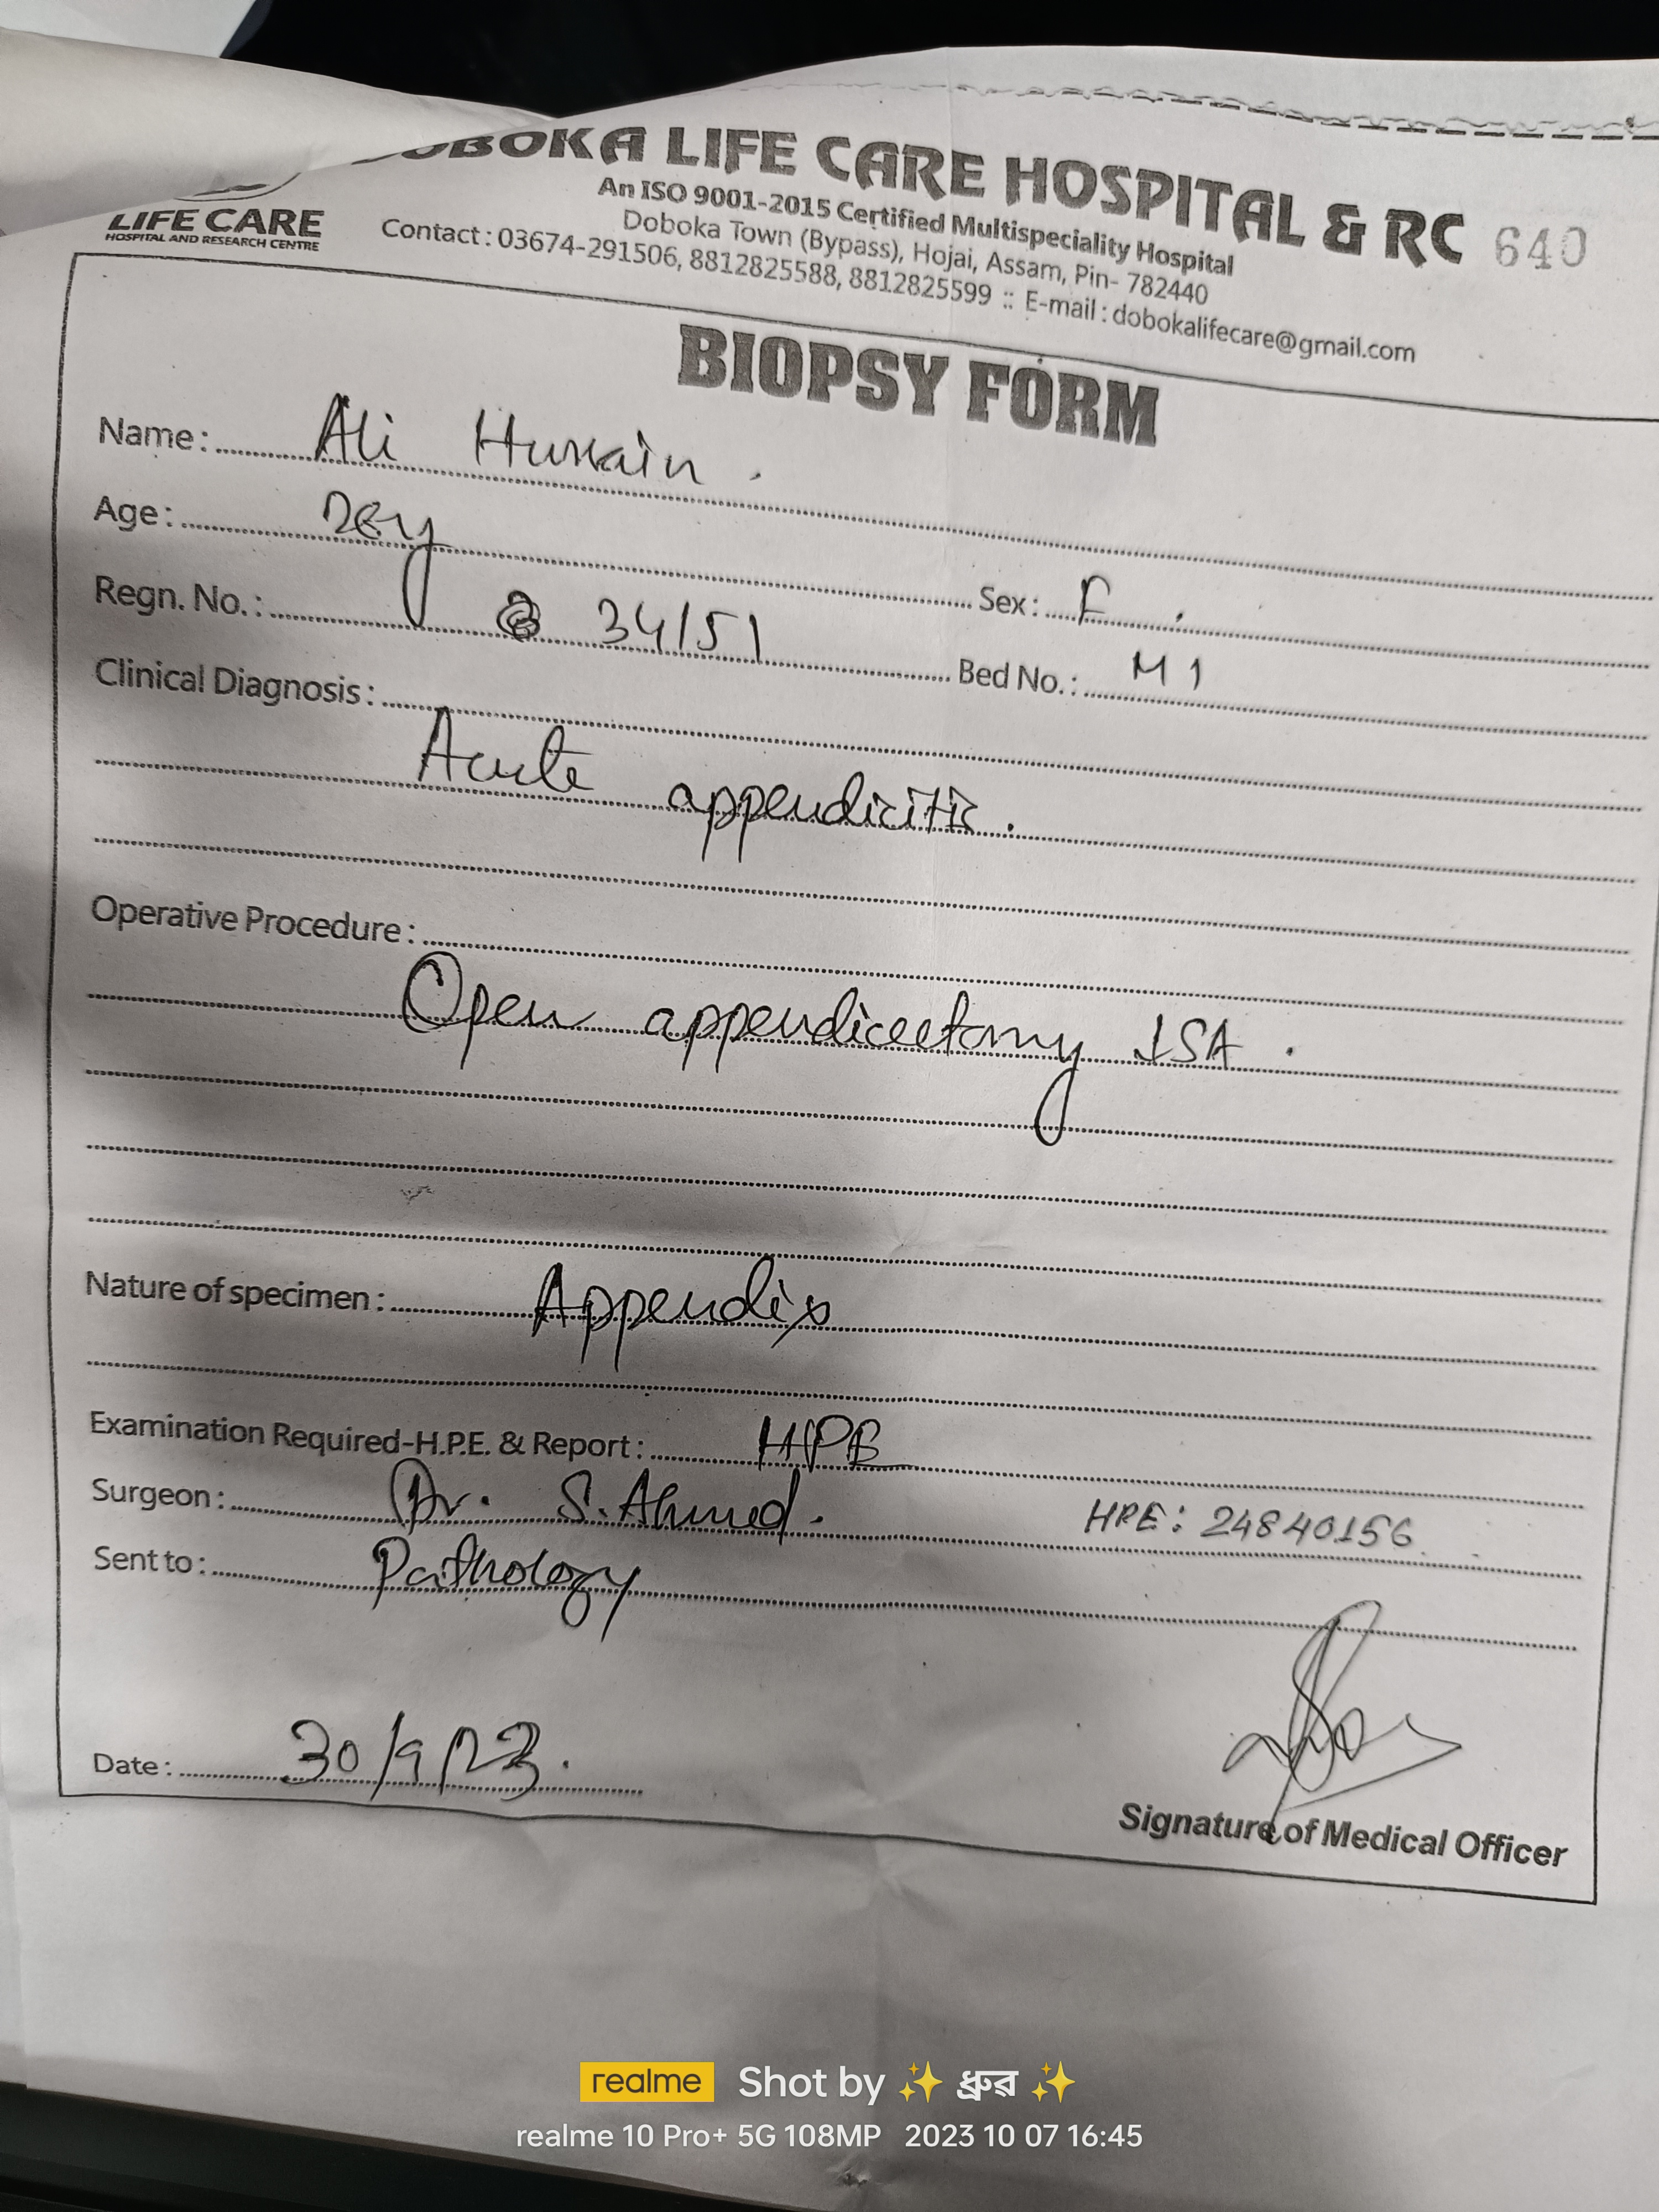 BOKA LIFE CARE HOSPITAL & RC 640
An ISO 9001-2015 Certified Multispeciality Hospital
LIFE CARE
HOSPITAL AND RESEARCH CENTRE
Doboka Town (Bypass), Hojai, Assam, Pin- 782440
Contact : 03674-291506, 8812825588, 8812825599 :: E-mail : dobokalifecare@gmail.com
BIOPSY FORM
Name : Ali Hussain .
Age :
Sex : F .
Regn. No. : 34151
Bed No. : M 1
Clinical Diagnosis :
Acute appendicitis .
Operative Procedure :
Open appendicectomy SA .
Nature of specimen : Appendix
Examination Required-H.P.E. & Report : HPE
Surgeon : Dr. S. Ahmed .
HPE : 24840156
Sent to : Pathology
Date : 30/9/23 .
Signature of Medical Officer
realme Shot by ✨ ধ্ৰুৱ ✨
realme 10 Pro+ 5G 108MP 2023 10 07 16:45